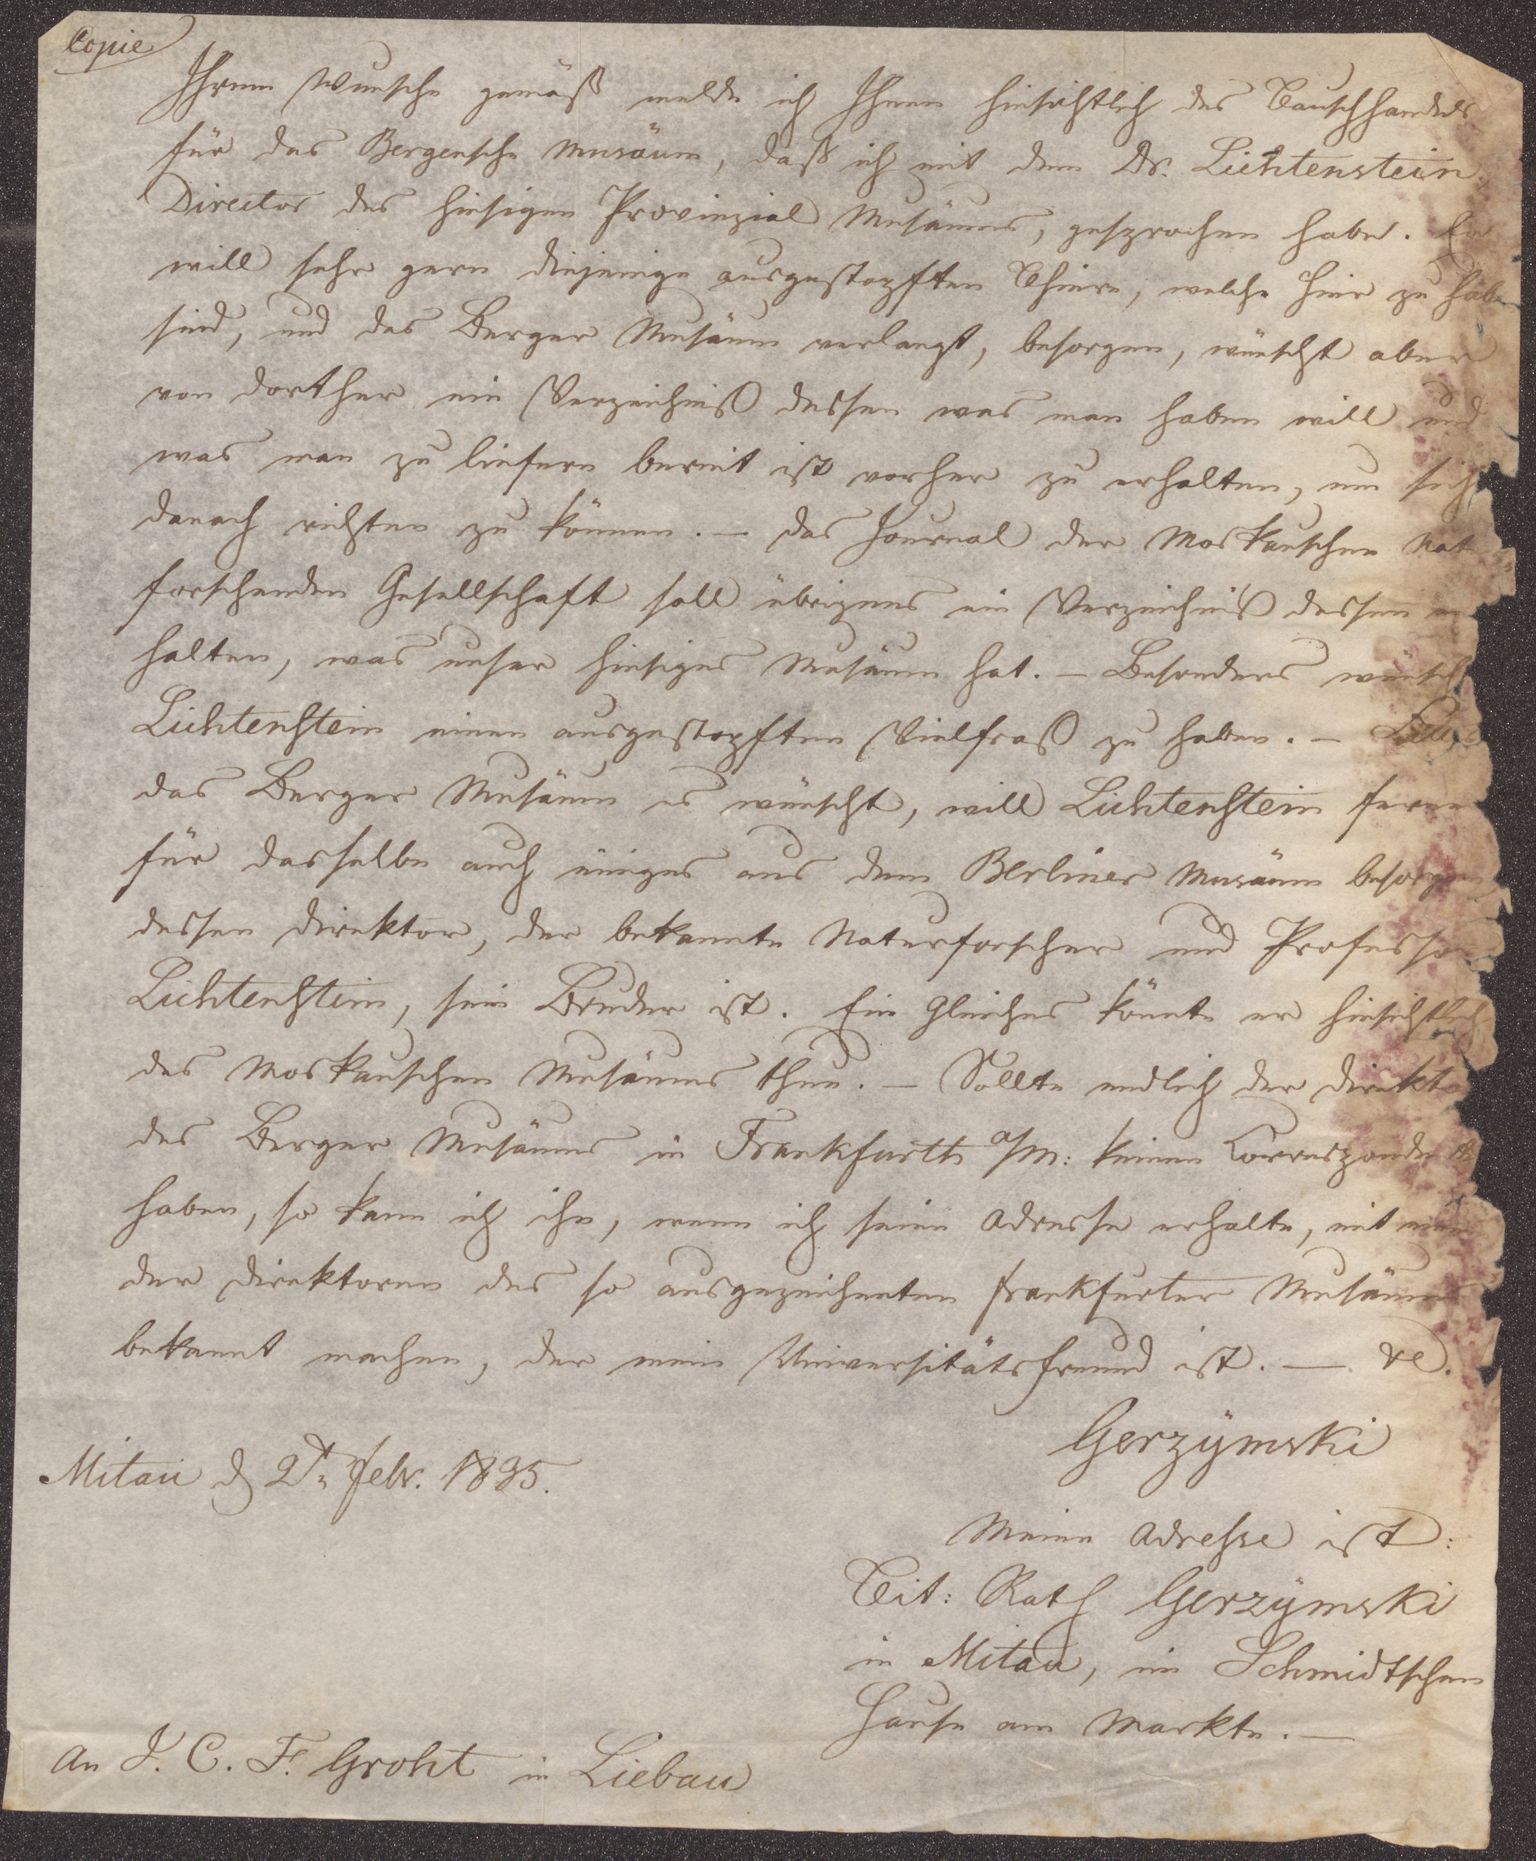 Copie
Ihrem Wunsche gemäß melde ich Ihnen hinsichtlich des Tauschhandels
für das Bergensche Musäum, daß ich mit dem Dr. Lichtenstein
Director des hiesigen Provinzial Musäums, gesprochen habe. Er
will sehr gern diejenige ausgestopften Thiere, welche hier zu habe
sind, und das Berger Musäum verlangt, besorgen, wünscht aber
von dorther ein Verzeichniß dessen was man haben will und
was man zu liefern bereit ist vorher zu erhalten, um sich
danach richten zu können. — Das Journal der Moskauschen Nat
forschenden Gesellschaft soll übrigens ein Verzeichniß dessen
halten, was unser hiesiges Musäum hat. — Besonders wünscht
Lichtenstein einen ausgestopften Vielfraß zu haben. —
das Berger Musäum es wünscht, will Lichtenstein ferne
für dasselbe auch einiges aus dem Berliner Musäum besorgen
dessen Direktor, der bekannte Naturforscher und Professor
Lichtenstein, sein Bruder ist. Ein Gleiches könnte er hinsichtlich
des Moskauschen Musäums thun. — Sollte endlich der Direkto
des Berger Musäums in Frankfurth a/m: keinen Corresponde
haben, so kann ich ihn, wenn ich seine Adresse erhalte, mit
der Direktoren des so ausgezeichneten Frankfurter Musäums
bekannt machen, der mein Universitätsfreund ist. —
Gerzÿmski
Mitau d 2t. Febr. 1835.
Meine Adresse ist:
Tit: Rath Gerzÿmski
in Mitau, im Schmidtschen
Hause am Markte. —
An J. C. F. Groht in Liebau